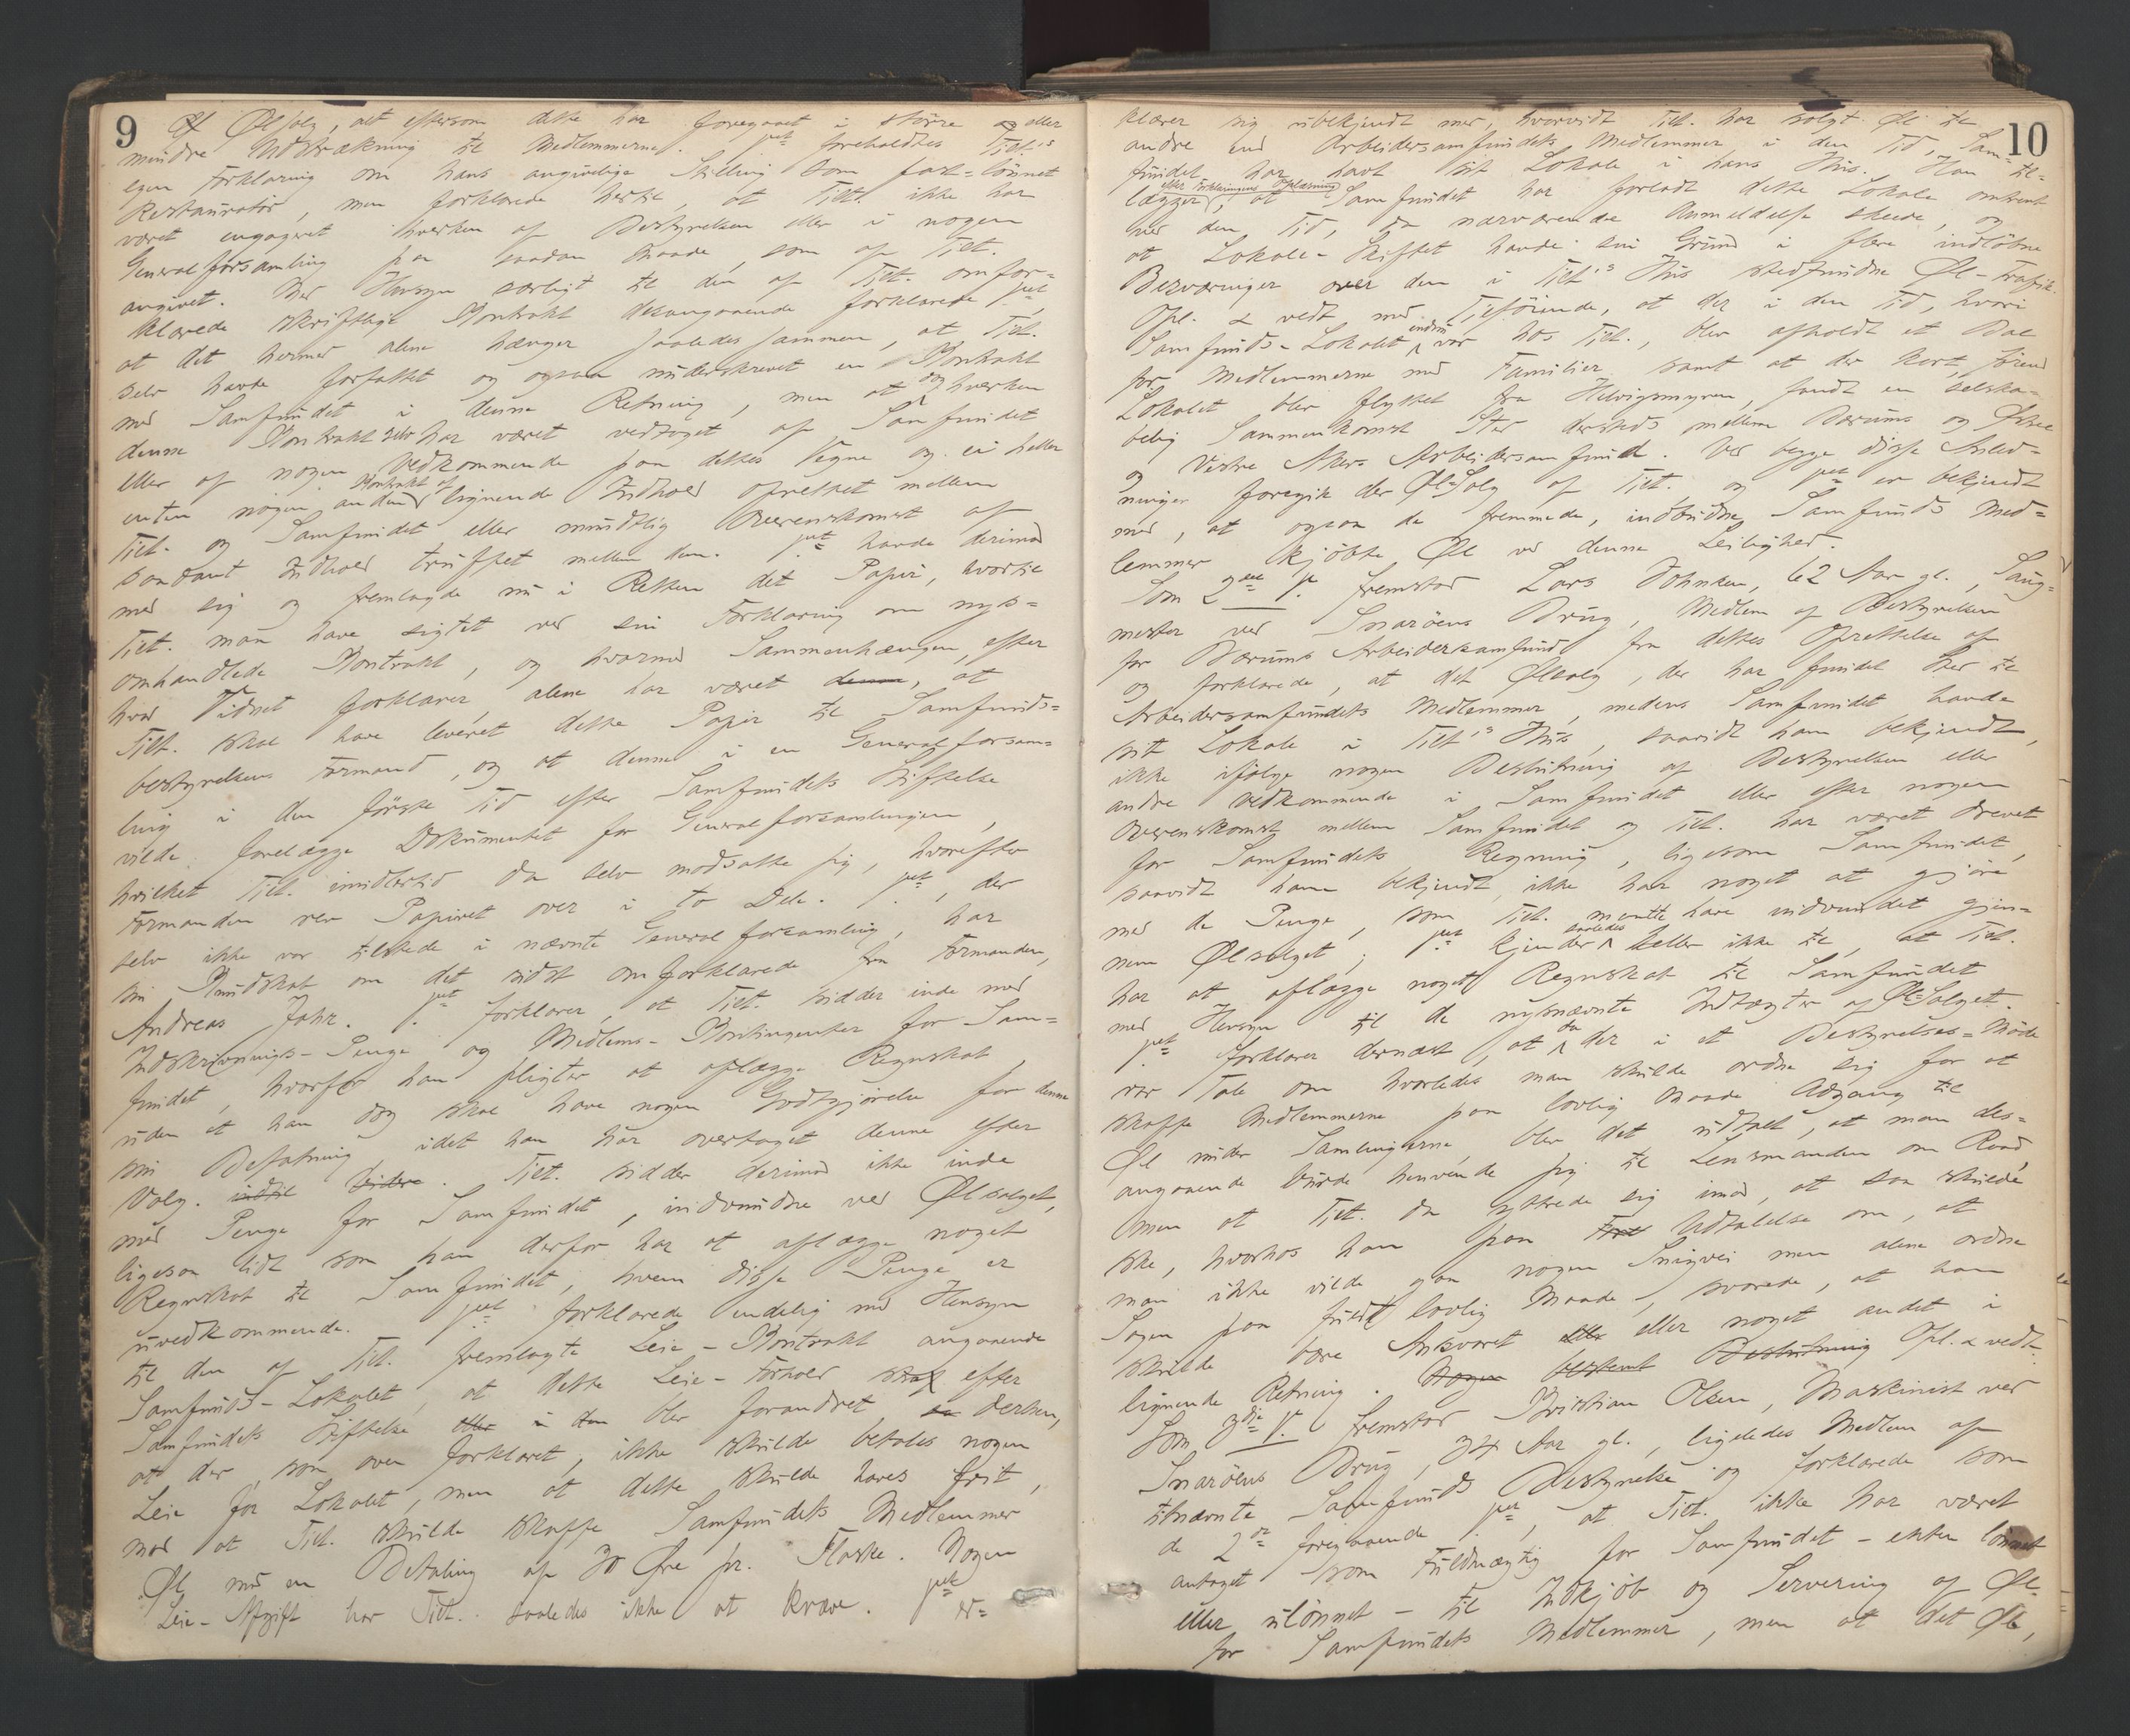 9
Øl Ølsalg, alt eftersom dette har foregaaet i større og eller
mindre Udstrækning til Medlemmerne. Vet foreholdtes Tilt.'s
egen Forklaring om hans angivelige Stilling som fast-lønnet
Restauratør, men forklarede hertil, at Tilt. ikke har
været engageret hverken af Bestyrelsen eller i nogen
Generalforsamling paa saadan Maade, som af Tilt.
angivet. Med Hensyn særligt til den af Tilt. omfor=
klarede skriftlige Kontrakt desangaaende forklarede Vet,
at det hermed alene hænger saaledes sammen, at Tilt.
selv havde forfattet og ogsaa underskrevet en Kontrakt
med Samfundet i denne Retning, men at dog hverken
denne Kontrakt selv har været vedtaget af Samfundet
eller af nogen Vedkommende paa dettes Vegne og ei heller
enten nogen anden Kontrakt af lignende Indhold oprettet mellem
Tilt. og Samfundet eller mundtlig Overenskomst af
saadant Indhold truffet mellem dem. Vet havde derimod
med sig og fremlagde nu i Retten det Papir, hvortil
Tilt. maa have sigtet ved sin Forklaring om nys=
omhandlede Kontrakt, og hvormed Sammenhængen, efter
hvad Vidnet forklarer, alene har været denne, at
Tilt. skal have leveret dette Papir til Samfunds=
bestyrelsens Formand, og at denne i en Generalforsam=
ling i den første Tid efter Samfundets Stiftelse
vilde forelægge Dokumentet for Generalforsamlingen,
hvilket Tilt. imidlertid da selv modsatte sig, hvorefter
Formanden rev Papiret over i to Dele. Vet, der
selv ikke var tilstede i nævnte Generalforsamling, har
sin Kundskab om det sidst omforklarede fra Formanden,
Andreas Jahr. Vet forklarer, at Tilt. sidder inde med
Indskrivnings-Penge og Medlems-Kontingenter for Sam=
fundet, hvorfor han pligter at aflægge Regnskab,
uden at han dog skal have nogen Godtgjørelse for denne
sin Befatning, idet han har overtaget denne efter
Valg. indtil videre. Tilt. sidder derimod ikke inde
med Penge for Samfundet, indvundne ved Ølsalget,
ligesaa lidt som han derfor har at aflægge noget
Regnskab til Samfundet, hvem disse Penge er
uvedkommende. Vet forklarede endelig med Hensyn
til den af Tilt. fremlagte Leie-Kontrakt angaaende
Samfunds-Lokalet, at dette Leie-Forhold skal efter
Samfundets Stiftelse eller i den blev forandret, saa derhen,
at der, som over forklaret, ikke skulde betales nogen
Leie for Lokalet, men at dette skulde haves frit,
mod at Tilt. skulde skaffe Samfundets Medlemmer
Øl mod en Betaling af 30 Øre pr. Flaske. Nogen
Leie-Afgift har Tilt. saaledes ikke at kræve. Vet er=
10
klærer sig ubekjendt med, hvorvidt Tilt. har solgt Øl til
andre end Arbeidersamfundets Medlemmer i den Tid, Sam=
fundet har havt sit Lokale i hans Hus. Han til=
lægger, efter Forklaringens Oplæsning, at Samfundet har forladt dette Lokale omtrent
ved den Tid, da nærværende Anmeldelse skeede, og
at Lokale-Skiftet havde sin Grund i flere indløbne
Besværinger over den i Tilt's Hus stedfundne Øl-Trafik.
Opl. & vedt. med Tilførende, at der i den Tid, hvori
Samfunds-Lokalet endnu var hos Tilt., blev afholdt et Bal
for Medlemmerne med Familier samt at der kort, førend
Lokalet blev flyttet fra Helvigsmyren, fandt en selska=
belig Sammenkomst Sted dersteds mellem Bærums og Østre
og Vestre Akers Arbeidersamfund. Ved begge disse Anled=
ninger foregik der Øl-Salg af Tilt. og Vet er bekjendt
med, at ogsaa de fremmede, indbudne Samfunds Med=
lemmer kjøbte Øl ved denne Leilighed.
Som 2det V. fremstod Lars Johnsen, 62 Aar gl., Saug=
mester ved Snarøens Brug, Medlem af Bestyrelsen
for Bærums Arbeidersamfund fra dettes Oprettelse af
og forklarede, at det Ølsalg, der har fundet Sted til
Arbeidersamfundets Medlemmer, medens Samfundet havde
sit Lokale i Tilt's Hus, saavidt ham bekjendt,
ikke ifølge nogen Beslutning af Bestyrelsen eller
andre Vedkommende i Samfundet eller efter nogen
Overenskomst mellem Samfundet og Tilt. har været drevet
for Samfundets Regning, ligesom Samfundet,
saavidt ham bekjendt, ikke har noget at gjøre
med de Penge, som Tilt. maatte have indvundet gjen=
nem Ølsalget; Vet kjender saaledes heller ikke til, at Tilt.
har at aflægge noget Regnskab til Samfundet
med Hensyn til de nysnævnte Indtægter af Øl-Salget.
Vet forklarer dernæst, at da der i et Bestyrelses-Møde
var Tale om hvorledes man skulde ordne sig for at
skaffe Medlemmerne paa lovlig Maade Adgang til
Øl under Samlingerne, blev det udtalt, at man des=
angaaende burde henvende sig til Lensmanden om Raad,
men at Tilt. da yttrede sig imod, at saa skulde
ske, hvorhos han paa Udtalelse om, at
man ikke vilde gaa nogen Snigvei men alene ordne
Sagen paa fuldt lovlig Maade, svarede, at han
skulde bære Ansvaret eller eller noget andet i
lignende Retning. Nogen bestemt Beslutning Opl. & vedt.
Som 3die V. fremstod Kristian Olsen, Maskinist ved
Snarøens Brug, 34 Aar gl., ligeledes Medlem af
tilnævnte Samfunds Bestyrelse og forklarede som
de 2de foregaaende Ver, at Tilt. ikke har været
antaget som Fuldmægtig for Samfundet - enten lønnet
eller ulønnet - til Indkjøb og Servering af Øl
for Samfundets Medlemmer, men at det Øl,